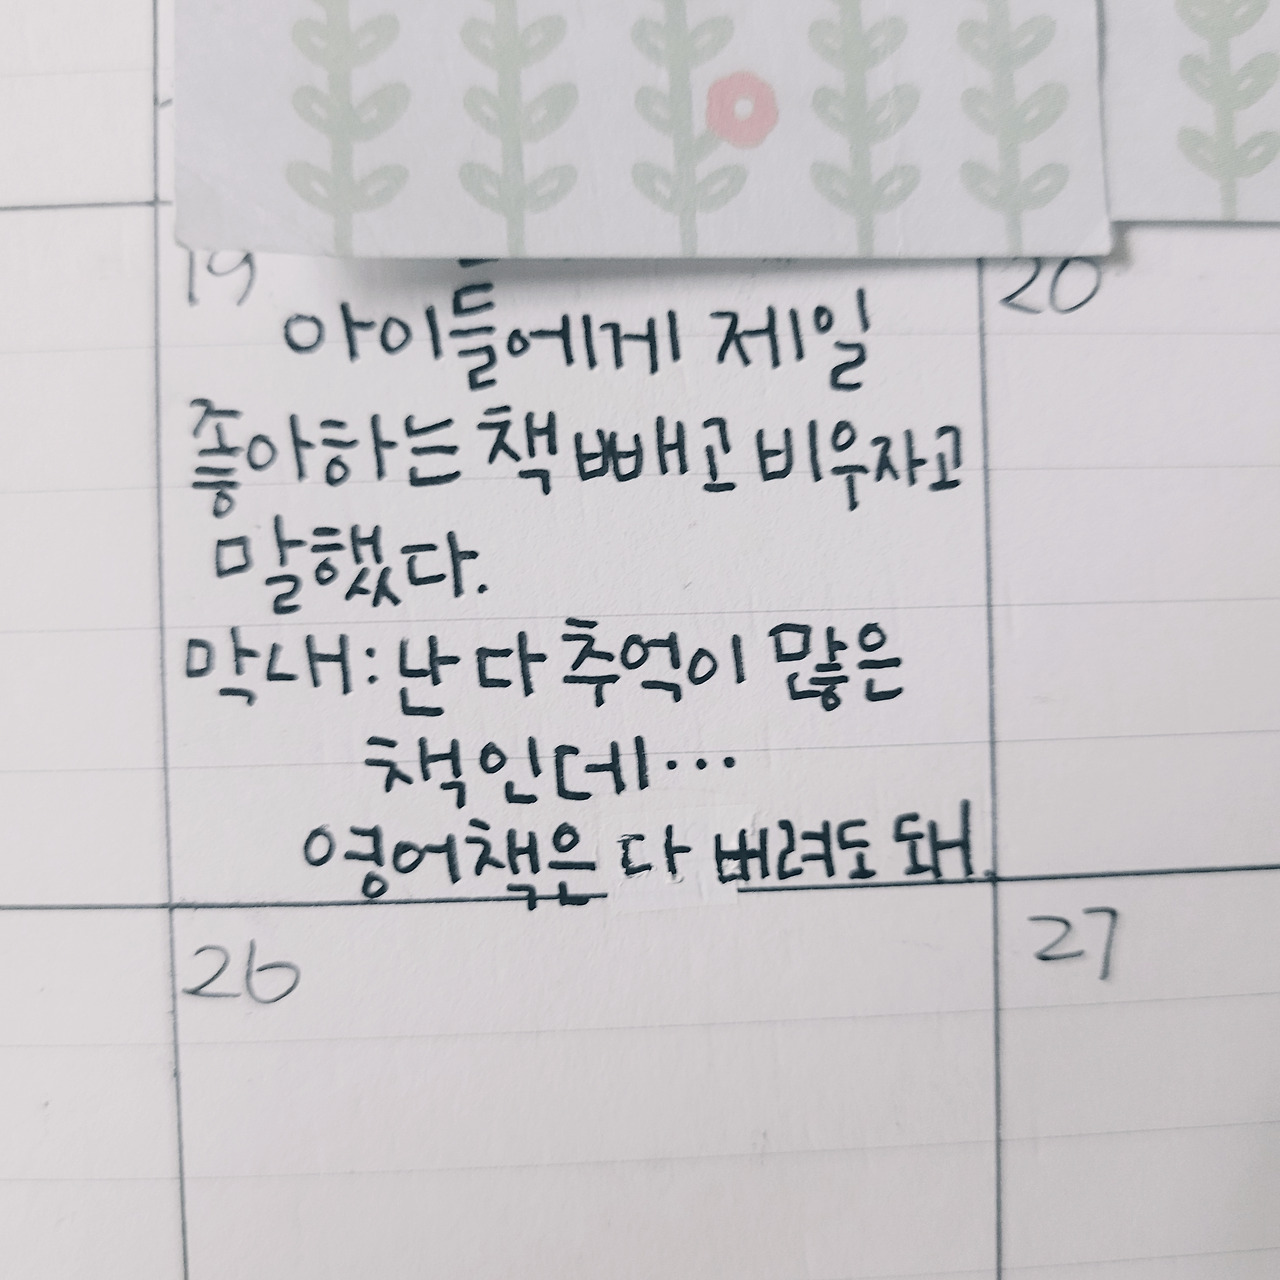 19
20
아이들에게 제일
좋아하는 책 빼고 비우자고
말했다.
막내: 난 다 추억이 많은
책인데...
영어책은 다 버려도 돼.
26
27